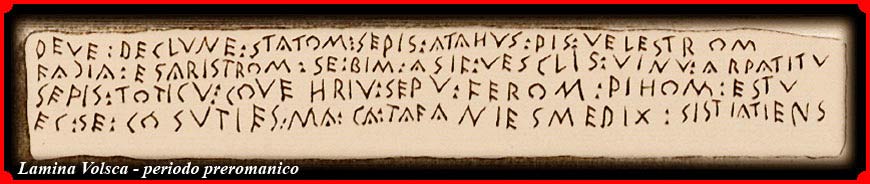 DEVE : DECLVNE : STATOM : SEPIS : ATAHVS : PIS : VELESTROM
FAƆIA : ESARISTROM : SE : BIM : ASIF : VESCLIS : VINV : ARPATITV
SEPIS : TOTICV : COVEHRIV : SEPV : FEROM : PIHOM : ESTV
EC : SE : COSVTIES : MA : CA : TAFANIES MEDIX : SISTIATIENS
Lamina Volsca - periodo preromanico